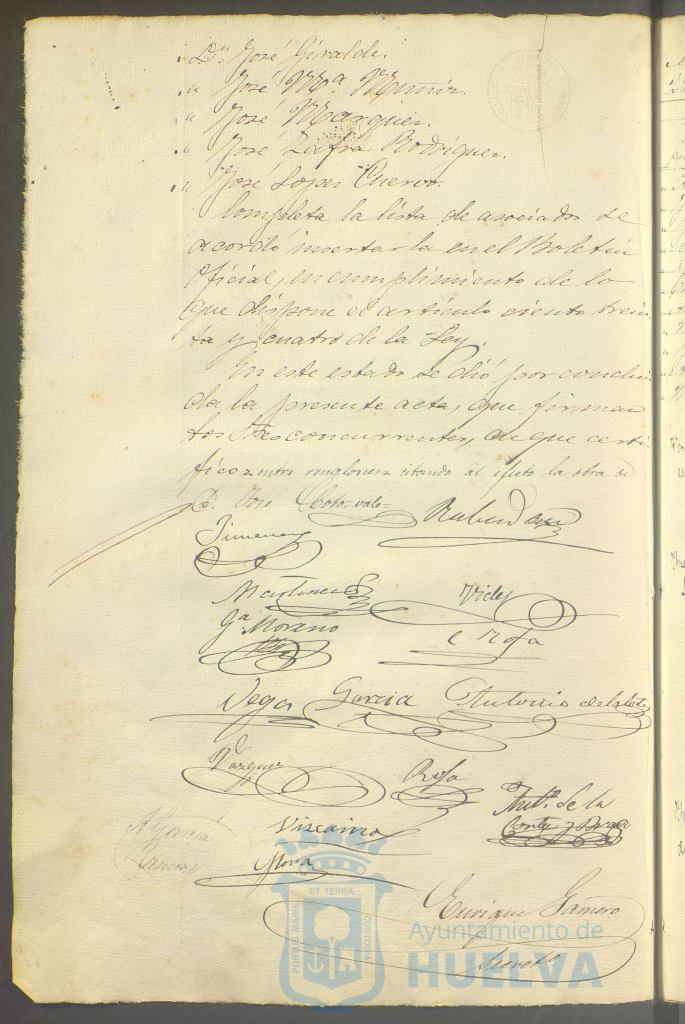 Dn José Giralde.
" José Mª Muñiz.
" José Marquez.
" José Zafra Rodriguez.
" José Lopez Cuervo.
Completa la lista de asociados se
acordó insertarla en el Boletin
Oficial, en cumplimiento de lo
que dispone el articulo ciento trein
ta y cuatro de la Ley.
En este estado se dió por conclui
da la presente acta, que firman
los Sres concurrentes, de que certi
fico = entre renglones = citando al efecto la obra de
D. José = vale =
Jimenez
Martinez Vides
Gª Morano
Vega Garcia Antonio de la
Vazquez Rofa
Antº. de la
Corte y
A Garcia
Ramos
Vizcaino
Mora
Enrique Gamero
Secretº
PORTUS MARIS ET TERRÆ CUSTODIA
Ayuntamiento de
HUELVA